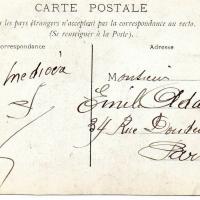 CARTE POSTALE
les pays étrangers n'acceptent pas la correspondance au recto.
(Se renseigner à la Poste).
orrespondance
Adresse
Monsieur
Emile Ada
34 Rue
Par